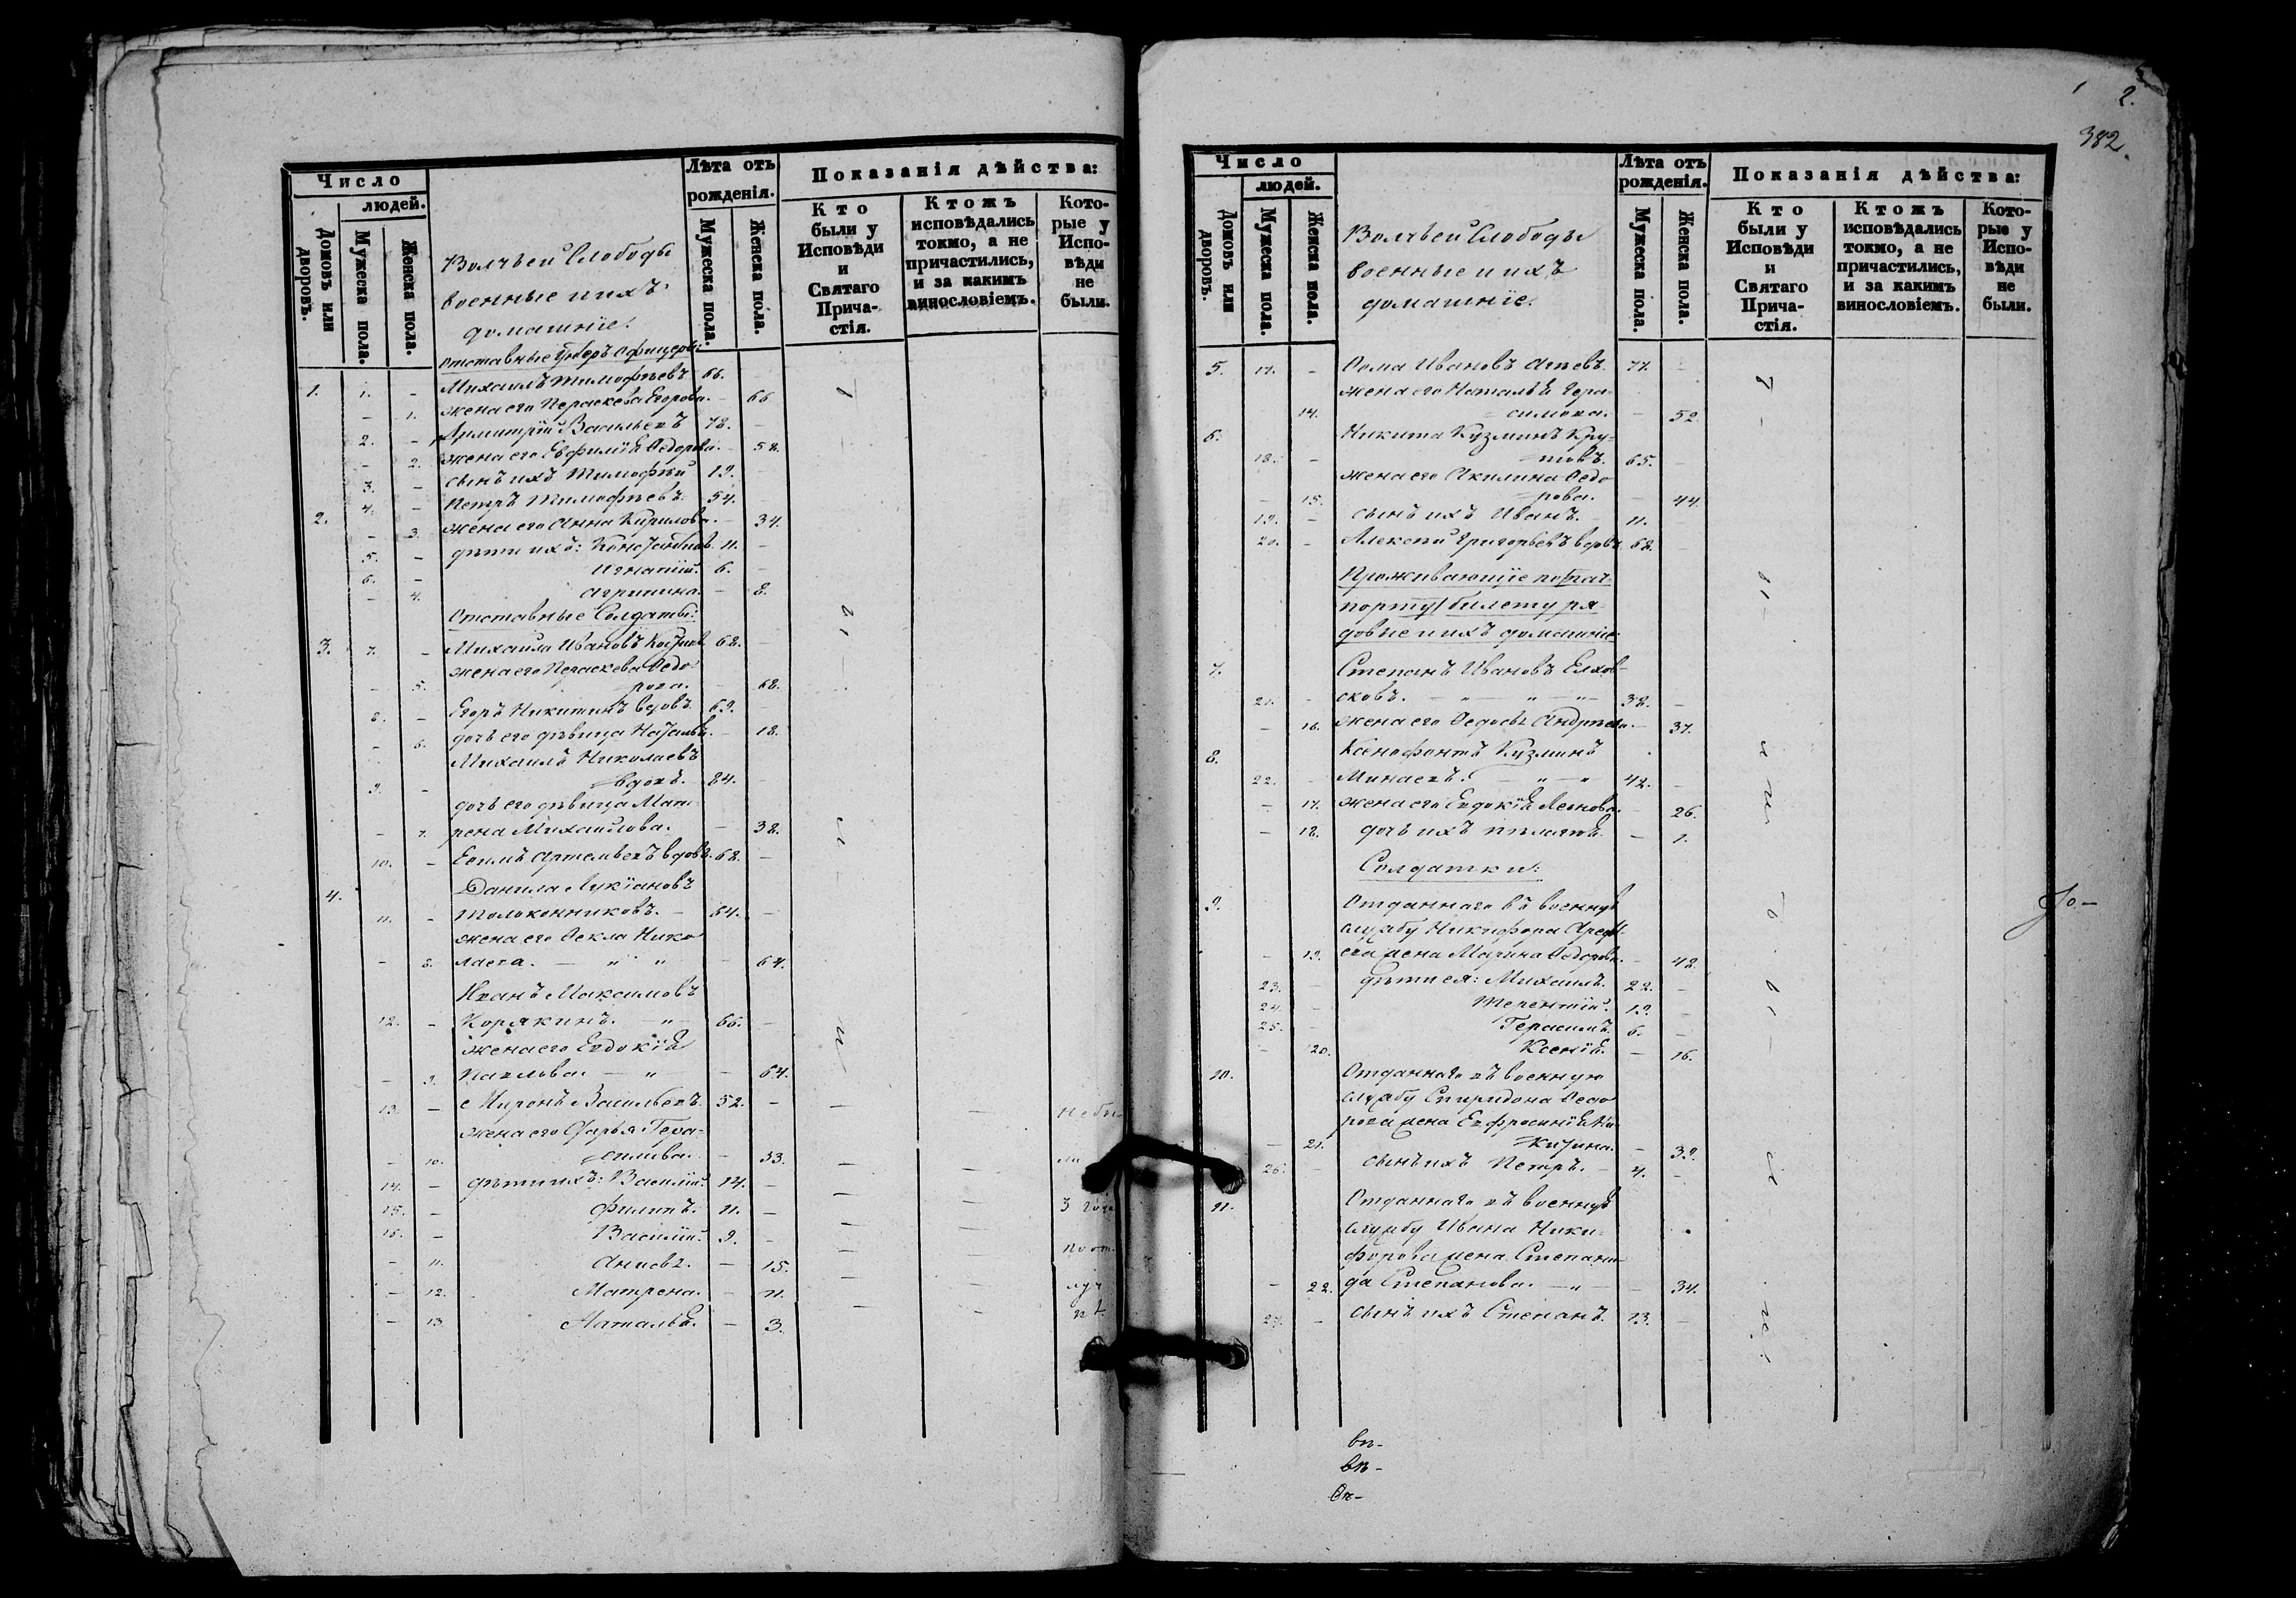 Число
людей.
Домовъ или дворовъ.
Мужеска пола.
Женска пола.
Волчьей Слободы
военные и ихъ
домашніе.
Лѣта отъ
рожденія.
Мужеска пола.
Женска пола.
Показанія дѣйства:
Кто
были у
Исповѣди
и
Святаго
Прича-
стія.
Ктожъ
исповѣдались
токмо, а не
причастились,
и за какимъ
винословіемъ.
Кото-
рые у
Испо-
вѣди
не
были.
Отставные Унтеръ Офицеры:
1. 1. - Михаилъ Тимофѣевъ 66.
- 1. жена его Параскева Егорова. - 66
2. - Димитрій Васильевъ 78. -
- 2. жена его Евфимія Ѳедорова. - 58.
3. - сынъ ихъ Тимофѣй 19.
2. 4. - Петръ Тимофѣевъ. 54. -
- 3. жена его Анна Кирилова. - 34.
5. - дѣти ихъ: Константинъ. 11. -
6. - Игнатій. 6. -
- 4. Агрипина. - 8.
Отставные Солдаты:
3. 7. - Михаила Ивановъ 68. -
жена его Параскева Ѳедо
- 5. рова. - 68.
8. - Егоръ Никитинъ вдовъ. 69. -
- 6. дочь его дѣвица Наталья. - 18.
Михаилъ Николаевъ
9. - вдовъ. 84. -
дочь его дѣвица Мат-
- 7. рена Михаилова. - 38.
10. - Ефимъ Артемьевъ вдовъ. 68. -
4. Данила Лукіановъ
11. - Толоконниковъ. - 64. -
жена его Ѳекла Нико
- 8. лаева. - " " - 64.
Иванъ Максимовъ
12. - Корякинъ. - " - 66. -
жена его Евдокія
- 9. Павлова. - " - - 64.
13. - Миронъ Васильевъ. 52. -
жена его Дарья Гера-
- 10. симова. - 33.
14. - дѣти ихъ: Василій. 14. -
15. - Филипъ. 11. -
16. - Василій. 9. -
- 11. Анисья. - 15.
- 12. Матрена. - 11.
- 13. Наталья. - 3.
2.
382.
Число
людей.
Домовъ или дворовъ.
Мужеска пола.
Женска пола.
Волчьей Слободы
военные и ихъ
домашніе.
Лѣта отъ
рожденія.
Мужеска пола.
Женска пола.
Показанія дѣйства:
Кто
были у
Исповѣди
и
Святаго
Прича-
стія.
Ктожъ
исповѣдались
токмо, а не
причастились,
и за какимъ
винословіемъ.
Кото-
рые у
Испо-
вѣди
не
были.
5. 17. - Ѳома Ивановъ 77. -
жена его Наталья Гера-
14. симова. - 52.
6. Никита Кузминъ Кру-
18. - товъ. 65. -
жена его Акилина Ѳедо
- 15. рова. - 44.
19. - сынъ ихъ Иванъ. - 11. -
20. - Алексѣй Григорьевъ вдовъ 68. -
Проживающіе по пас-
порту билету ря-
довые и ихъ домашніе.
7. Степанъ Ивановъ Елхов-
21. - сковъ. - " - " - " - 38. -
- 16. жена его Ѳедосья Андреева. - 37.
8. Ксенофонтъ Кузминъ
22. - Минаевъ. - " - " 42. -
- 17. жена его Евдокія Леонова. - 26.
- 18. дочь ихъ Пелагея. - 1.
Солдатки:
9. Отданнаго въ военную
службу Никифора
- 19. жена Марина Ѳедорова. - 42.
23. - дѣти ея: Михаилъ. 22. -
24. - Терентій. 19. -
25. - Герасимъ. 6. -
- 20. Ксенія. - 16.
10. Отданнаго въ военную
службу Спиридона Ѳедо
рова жена Евфросинія Ни-
- 21. китина. - 39.
26. - сынъ ихъ Петръ. - 4. -
11. Отданнаго въ военную
службу Ивана Ники-
форова жена Степани
- 22. да Степанова. - " - - 34.
27. - сынъ ихъ Степанъ. 13. -